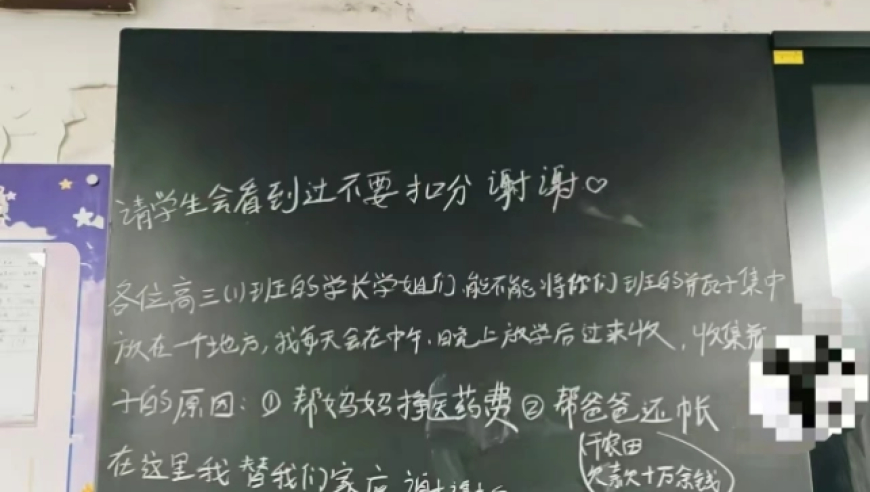 请学生会看到这不要扣分 谢谢♡
各位高三(1)班的学长学姐们,能不能将你们班的瓶子集中
放在一个地方,我每天会在中午、晚上放学后过来收,收集瓶
子的原因:①帮妈妈挣医药费②帮爸爸还帐
(干农田
欠款十万余钱)
在这里我替我们家庭谢谢